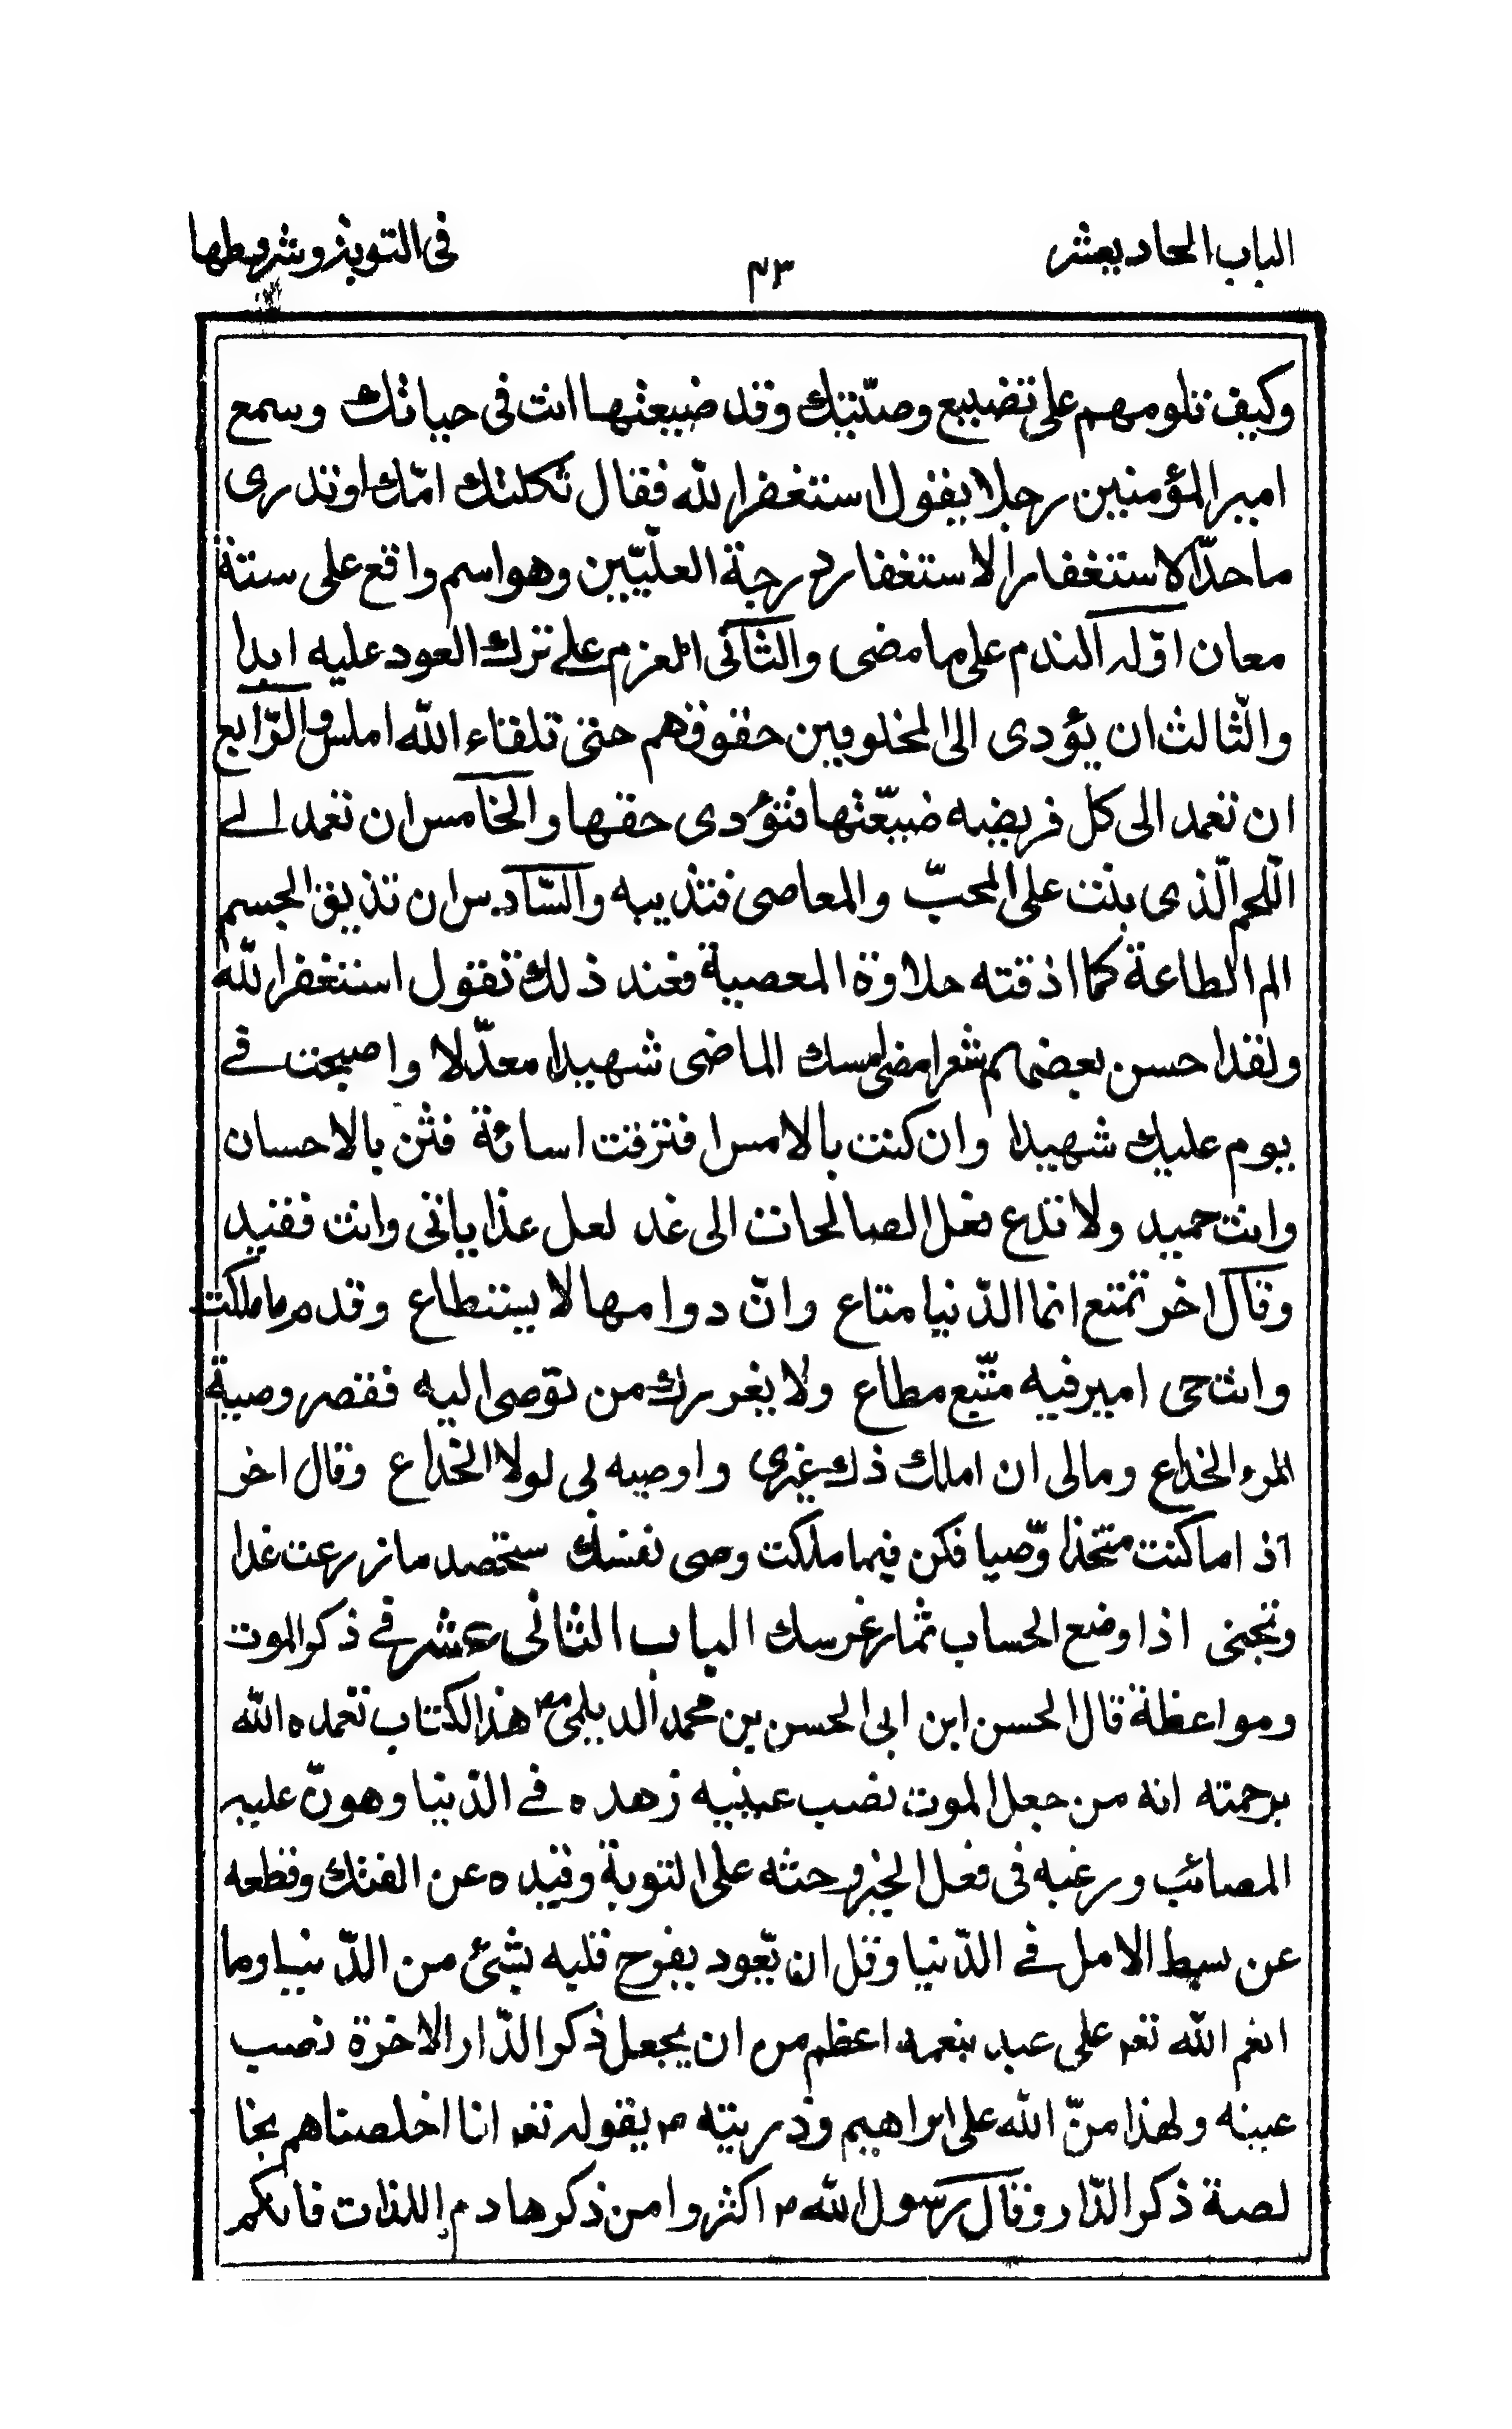 الباب الحادیعشر
۴۳
فی التوبة وشروطها
وکیف تلومهم علی تضییع وصیّتك وقد ضیعتها انت فی حیاتك وسمع
امیر المؤمنین رجلا یقول استغفر الله فقال ثکلتك امّك اوتدری
ما حدّ الاستغفار الاستغفار درجة العلیّین وهو اسم واقع علی ستة
معان اوّله الندم علی ما مضی والثانی العزم علی ترك العود علیه ابدا
والثّالث ان یؤدی الی المخلوقین حقوقهم حتی تلقاء الله املس والرّابع
ان تعمد الی کل فریضه ضیّعتها فتؤدی حقها والخامس ان تعمد الی
اللّحم الّذی بنت علی المحبّ والمعاصی فتذیبه والسّادس ان تذیق الجسم
الم الطاعة کما اذقته حلاوة المعصیة فعند ذلك تقول استغفر الله
ولقد احسن بعضهم شعرا مضی امسك الماضی شهیدا معدّلا واصبحت فی
یوم علیك شهیدا وان کنت بالامس اقترفت اسائة فثن بالاحسان
وانت حمید ولا تدع فعل الصالحات الی غد لعل غدا یاتی وانت فقید
وقال اخر تمتع انما الدّنیا متاع وانّ دوامها لا یستطاع وقدم ما ملکت
وانت حی امیر فیه متّبع مطاع ولا یغررك من توصی الیه فقصر وصیة
المرء الخداع ومالی ان املك ذك غیری واوصیه لی لولا الخداع وقال اخر
اذ اما کنت متخذا وّصیا فکن فیما ملکت وصی نفسك ستحصد ما زرعت غدا
وتجنی اذا وضع الحساب ثمار غرسك الباب الثانی عشر فی ذکر الموت
ومواعظة قال الحسن ابن ابی الحسن بن محمد الدیلمی مص هذا الکتاب تغمده الله
برحمته انه من جعل الموت نصب عینیه زهده فی الدّنیا وهوّن علیه
المصائب ورغبه فی فعل الخیر وحثه علی التوبة وقیده عن الفتك وقطعه
عن بسط الامل فی الدّنیا وقل ان یعود یفرح قلبه بشیئ من الدّنیا وما
انعم الله تعم علی عبد بنعمه اعظم من ان یجعل ذکر الدّار الاخرة نصب
عینه ولهذا منّ الله علی ابراهیم وذریته م یقوله تعم انا اخلصناهم بخا
لصة ذکر الدّار وقال رسول الله م اکثروا من ذکر هادم اللذات فانکم